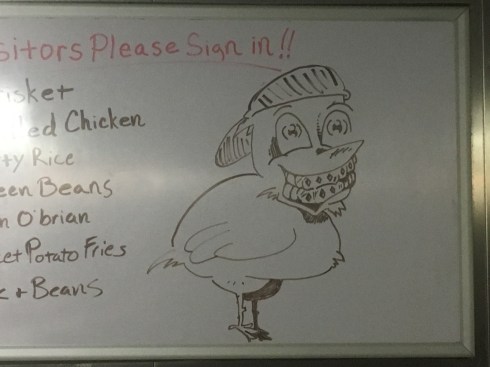 sitors Please Sign in!!
isket
led Chicken
ty Rice
een Beans
n O'brian
et Potato Fries
+ Beans